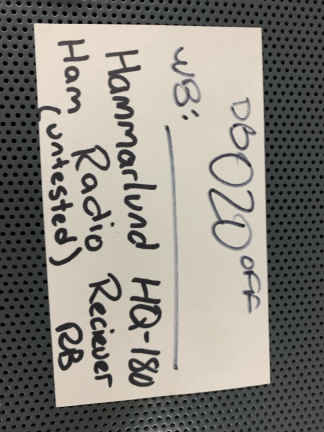 DG020OFF
WB:
Hammarlund HQ-180
Ham Radio Reciever
(untested) RB